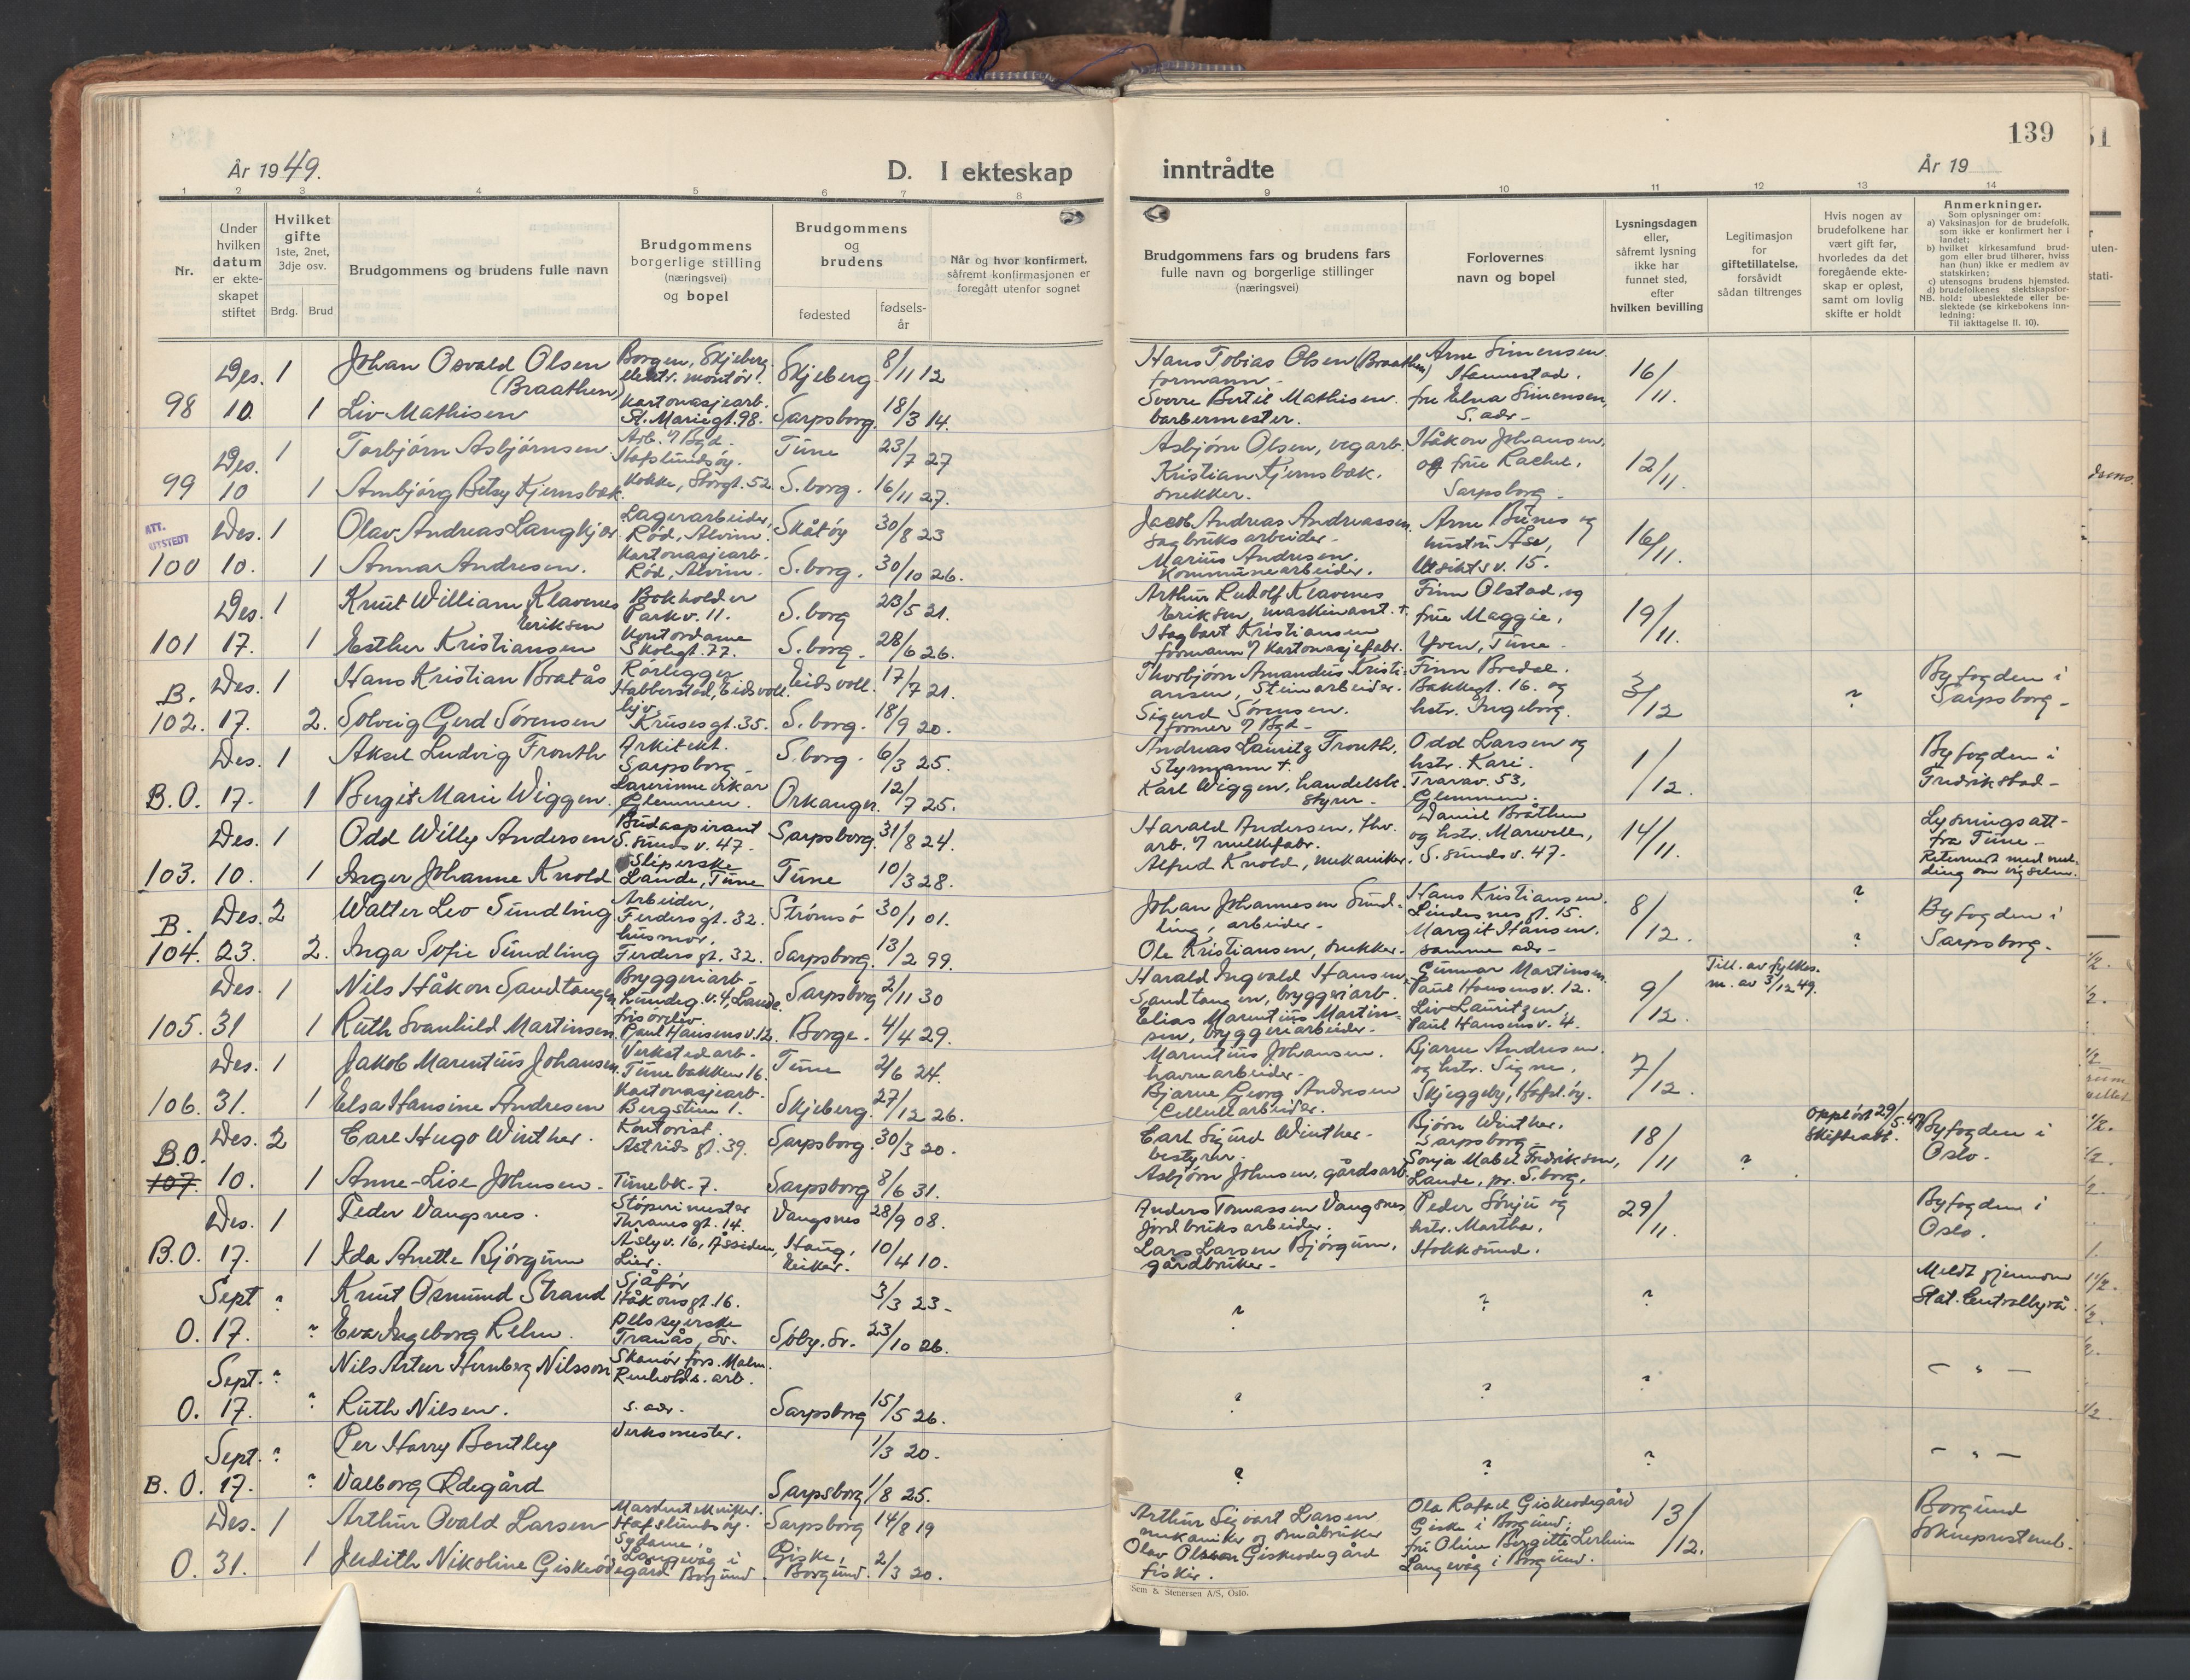 139
År 1949.
D. I ekteskap
inntrådte
År 19
1 2 3 4 5 6 7 8 9 10 11 12 13 14
Nr.
Under hvilken datum er ekteskapet stiftet
Hvilket gifte
1ste, 2net, 3dje osv.
Brdg. Brud
Brudgommens og brudens fulle navn
Brudgommens borgerlige stilling (næringsvei) og bopel
Brudgommens og brudens
fødested
fødsels-år
Når og hvor konfirmert, såfremt konfirmasjonen er foregått utenfor sognet
Brudgommens fars og brudens fars fulle navn og borgerlige stillinger (næringsvei)
Forlovernes navn og bopel
Lysningsdagen eller, såfremt lysning ikke har funnet sted, efter hvilken bevilling
Legitimasjon for giftetillatelse, forsåvidt sådan tiltrenges
Hvis nogen av brudefolkene har vært gift før, hvorledes da det foregående ekteskap er opløst, samt om lovlig skifte er holdt
Anmerkninger.
Som oplysninger om:
a) Vaksinasjon for de brudefolk, som ikke er konfirmert her i landet;
b) hvilket kirkesamfund brudgom eller brud tilhører, hviss han (hun) ikke er medlem av statskirken;
c) utensogns brudens hjemsted.
d) brudefolkenes slektskapsforhold: ubeslektede eller beslektede (se kirkebokens innledning:
NB. Til iakttagelse II. 10).
Des. 1 Johan Osvald Olsen (Braathen) Borgen, Skjeberg elektr. montør. Skjeberg 8/11 12 Hans Tobias Olsen (Braathen) formann - Arne Simensen Hannestad. 16/11.
98 10. 1 Liv Mathisen Kartonasjearb. St. Mariegt. 98. Sarpsborg. 18/3 14. Sverre Bertil Mathisen. barbermester. fru Elna Simensen, S. adr -
Des. 1 Torbjørn Asbjørnsen Arb. v/ Bgd. Hafslundsøy. Tune 23/7 27 Asbjørn Olsen, vegarb. Håkon Johansen, 12/11.
99 10 1 Ambjørg Betsy Kjernsbæk Kokke, Storgt. 52 S. borg. 16/11 27. Kristian Kjernsbæk. snekker. og frue Rachel, Sarpsborg -
ATT. UTSTEDT
Des. 1 Olav Andreas Langkjær Lagerarbeider, Rød, Alvim. Skåtøy 30/8 23 Jacob Andreas Andreassen sagbruksarbeider - Arne Bunes og hustru Åse, 16/11.
100 10. 1 Anna Andresen. Kartonasjearb. Rød, Alvim. S. borg. 30/10 26. Marius Andresen. Kommunearbeider. Utsiktsv. 15.
Des. 1 Knut William Klavenes Eriksen Bokholder Parkv. 11. S. borg 23/5 21. Arthur Rudolf Klavenes Eriksen, maskinasst. + Finn Olstad, og 19/11.
101 17. 1 Esther Kristiansen Kontordame Skolegt. 77. S. borg. 28/6 26. Hagbart Kristiansen formann v/ Kartonasjefabr. frue Maggie, Yven, Tune -
B. Des. 1 Hans Kristian Bratås Rørlegger Habberstad, Eidsvoll. Eidsvoll. 17/7 21. Thorbjørn Amandus Kristiansen, Steinarbeider. Finn Bredal. Bakkegt. 16. og 3/12 ? Byfogden i Sarpsborg -
102. 17. 2. Solveig Gjerd Sørensen hjv. Krusesgt. 35. S. borg. 18/9 20. Sigurd Sørensen. former v/ Bgd - hstr. Ingeborg.
Des. 1 Aksel Ludvig Fronth Arkitekt. Sarpsborg - S. borg. 6/3 25. Andreas Lauritz Fronth, Styrmann +. Odd Larsen og hstr. Kari. 1/12. Byfogden i Fredrikstad -
B.O. 17. 1 Bergit Marie Wiggen. Lærerinnevikar Glemmen. Orkanger. 12/7 25. Karl Wiggen, handelsbestyrer - Travav. 53, Glemmen.
Des. 1 Odd Willy Andersen Budaspirant S. sundsv. 47. Sarpsborg. 31/8 24. Harald Andersen, thv. arb. v/ melkefabr. Daniel Bråthen og hstr. Marwell, 14/11. Lysningsatt- fra Tune -
103. 10. 1 Inger Johanne Knold Sliperske Lande, Tune Tune 10/3 28. Alfred Knold, mekaniker. S. sundsv. 47. Returnert med melding om vigselen.
B. Des. 2 Walter Leo Sundling Arbeider, Ferdersgt. 32. Strømsø 30/1 01. Johan Johannesen Sundling, arbeider - Hans Kristiansen. Lindesnesgt. 15. 8/12. ? Byfogden i
104. 23. 2. Inga Sofie Sundling husmor, Ferdersgt. 32. Sarpsborg. 13/2 99. Ole Kristiansen, snekker. Margit Hansen. samme adr - ? Sarpsborg -
Des. 1 Nils Håkon Sandtangen Bryggeriarb - Lundeg. v. 4, Lande. Sarpsborg 2/11 30 Harald Ingvald Hansen Sandtangen, bryggeriarb. Gunnar Martinsen. Paul Hansensv. 12. 9/12. Till. av fylkesm. av 3/12 49.
105. 31 1 Ruth Svanhild Martinsen frisørelev. Paul Hansensv. 12. Borge. 4/4 29. Elias Marentius Martinsen, bryggeriarbeider - Liv Lauritzen, Paul Hansensv. 4.
Des. 1 Jakob Marentius Johansen. Verkstedarb - Tunebakken 16. Tune 2/6 24. Marentius Johansen. havnearbeider - Bjarne Andresen. og hstr. Signe, 7/12.
106. 31. 1 Elsa Hansine Andresen Kartonasjearb. Bergstien 1. Skjeberg. 27/12 26. Bjarne Georg Andresen Cellulearbeider. Skjeggeby, Hafsl.øy.
B.O. Des. 2 Carl Hugo Winther. Kontorist. Astridsgt. 39. Sarpsborg. 30/3 20. Carl Sigurd Winther - bestyrer. Bjørn Winther. Sarpsborg - 18/11 ? oppløst 29/5-47 Skifteatt. Byfogden i Oslo.
107. 10. 1 Anne-Lise Johnsen - Tunebk. 7. Sarpsborg 8/6 31. Asbjørn Johnsen, gårdsarb. Sonja Mabel Fredriksen, Lande, pr. S. borg.
Des. 1 Peder Vangsnes. Støperimester Thranesgt. 14. Vangsnes 28/9 08. Anders Tomassen Vangsnes Jordbruksarbeider. Peder Sønju og hstr. Martha, 29/11. Byfogden i Oslo.
B.O. 17. 1 Ida Anette Bjørgum Åslyv. 16, Åssiden, Lier. Haug, Eiker. 10/4 10. Lars Larsen Bjørgum, gårdbruker - Hokksund.
Sept ? Knut Osmund Strand Sjåfør Håkonsgt. 16. 3/3 23 - ? ? ? Meldt gjennom Stat. Centralbyrå.
O. 17. ? Eva Ingeborg Rehn. Pelssyerske Tranås, Sv. Søby. Sv. 23/10 26.
Sept. ? Nils Artur Hernberg Nilsson Skanör fors. Malm. Renholds. arb. ? ? ? - " -
O. 17. ? Ruth Nilsen. s. adr. Sarpsborg 15/5 26.
Sept. ? Per Harry Bentley Verksmester. 1/3 20. ? ? ? - " -
B. O. 17. ? Valborg Ødegård Sarpsborg 1/8 25.
Des. 1 Arthur Ovald Larsen Hafslundsøy. Sarpsborg 14/8 19 Arthur Sigvart Larsen mekaniker og småbruker Ola Rafael Giskeødegård Giske i Borgund. 13/12. Borgund
O. 31. 1 Judith Nikoline Giskeødegård Sydame, Langevåg i Borgund. Giske, Borgund. 2/3 20. Olav Olsson Giskeødegård fisker. fru Oline Bergitte Lerheim Langevåg i Borgund. Sokneprestemb.
Sem & Stenersen A/S, Oslo.